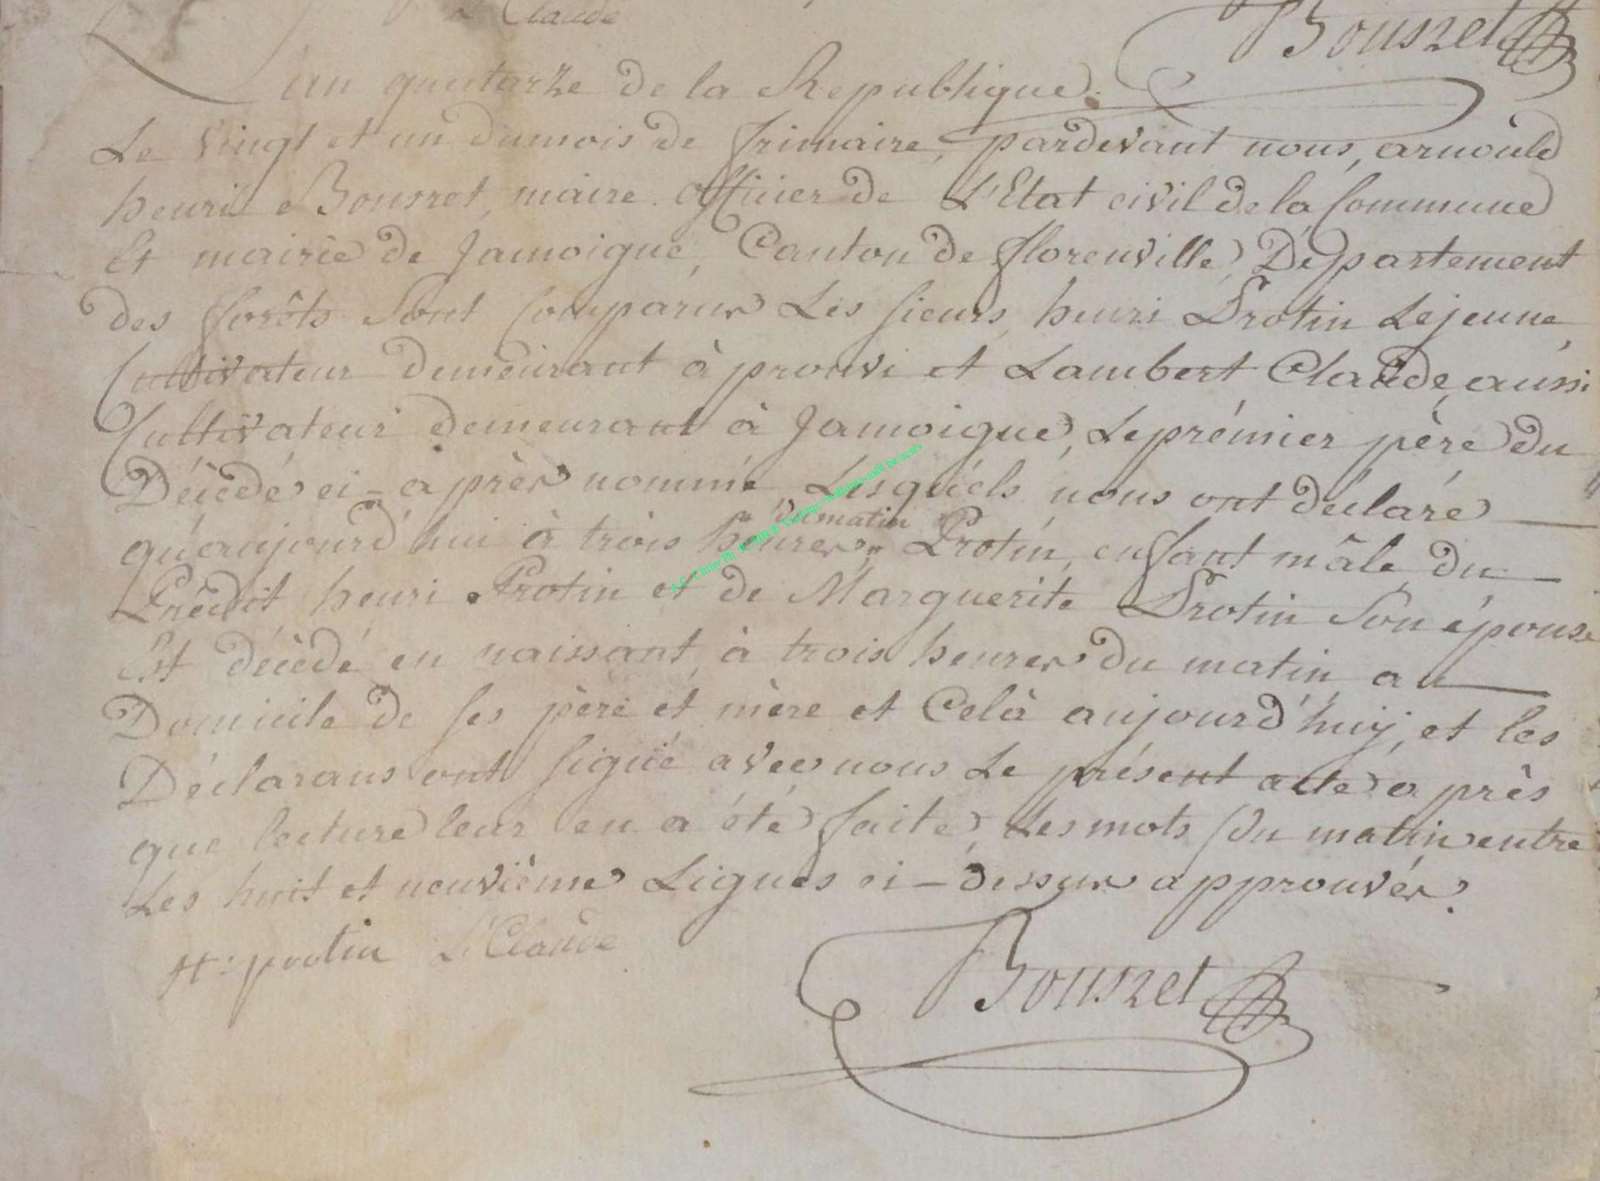 Claude
Bouszet
L'an quatorze de la Republique.
Le vingt et un du mois de frimaire, pardevant nous, arnould
henri Bouszet, maire officier de L'Etat civil de la Commune
Et mairie de Jamoigue, Canton de florenville, Département
des forêts Sont Comparus Les sieurs henri Protin Lejeune
Cultivateur demeurant à prouvi et Lambert Claude, aussi
Cultivateur demeurant à Jamoigue, Le prémier père du
Décédé ci-après nommé, Lesquéls nous ont déclaré
du matin
qu'aujourd'hui à trois heures, Protin, enfant mâle du
Prédit henri Protin et de Marguerite Protin Son épouse
Est décédé en naissant, à trois heures du matin au
Domicile de ses père et mère et Celà aujourd'huy, et les
Déclarans ont signé avec nous Le présent acte après
que lecture leur en a été faite, Les mots du matin entre
Les huit et neuvième Lignes ci-dessus approuvés.
H: protin L Claude
Bouszet